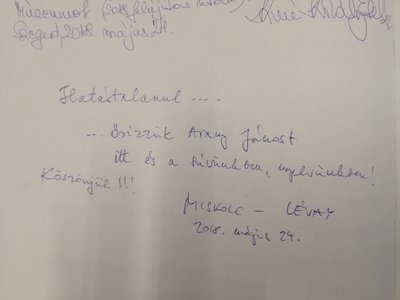 múzeumot (2018
Szeged, 2018. május 24.
Hatástalanul ....
... őrizzük Arany Jánost
itt és a szívünkben, nyelvünkben!
Köszönjük!!!
MISKOLC – LÉVAY
2018. május 24.